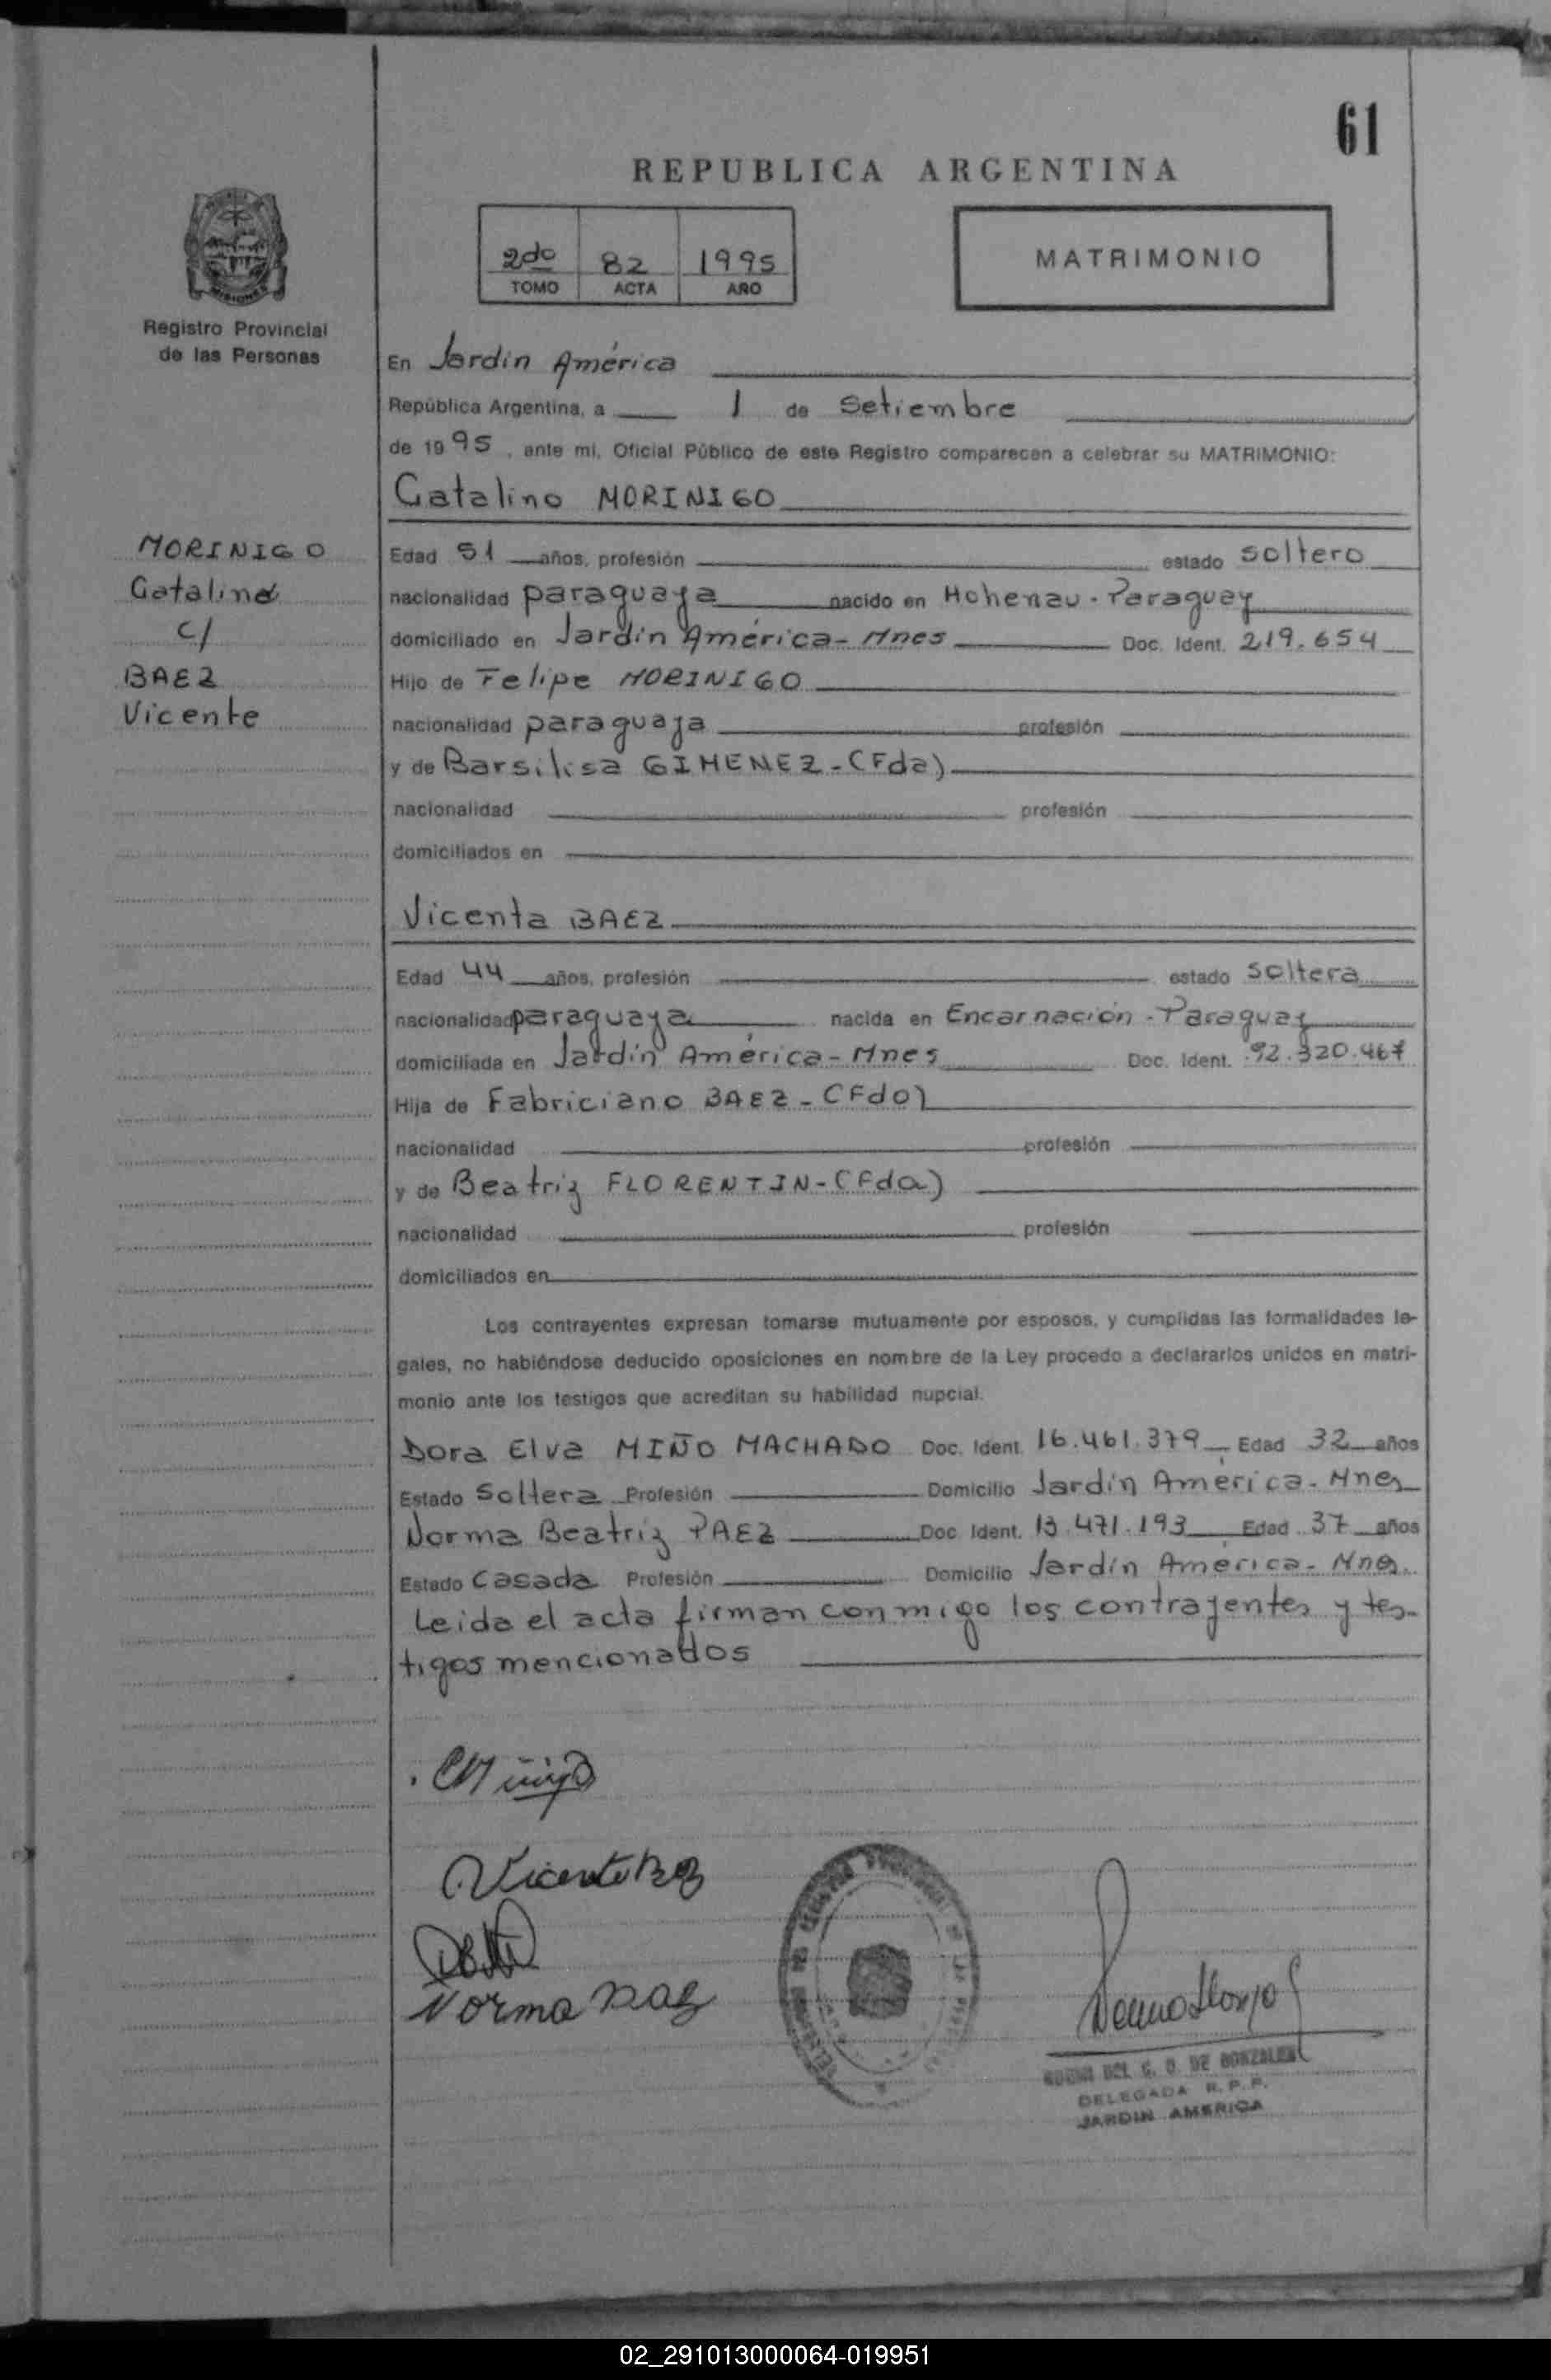 61
REPUBLICA ARGENTINA
2do 82 1995
TOMO ACTA AÑO
MATRIMONIO
MISIONES
Registro Provincial
de las Personas
En Jardín América
República Argentina, a 1 de Setiembre
de 1995, ante mi, Oficial Público de este Registro comparecen a celebrar su MATRIMONIO:
Catalino MORINIGO
MORINIGO
Catalino
c/
BAEZ
Vicente
Edad 51 años, profesión estado soltero
nacionalidad paraguaya nacido en Hohenau - Paraguay
domiciliado en Jardín América - Mnes Doc. Ident. 219.654
Hijo de Felipe MORINIGO
nacionalidad paraguaya profesión
y de Barsilisa GIMENEZ - (Fda)
nacionalidad profesión
domiciliados en
Vicenta BAEZ
Edad 44 años, profesión estado soltera
nacionalidad paraguaya nacida en Encarnación - Paraguay
domiciliada en Jardín América - Mnes Doc. Ident. 92.320.467
Hija de Fabriciano BAEZ - (Fdo)
nacionalidad profesión
y de Beatriz FLORENTIN - (Fda)
nacionalidad profesión
domiciliados en
Los contrayentes expresan tomarse mutuamente por esposos, y cumplidas las formalidades le-
gales, no habiéndose deducido oposiciones en nombre de la Ley procedo a declararlos unidos en matri-
monio ante los testigos que acreditan su habilidad nupcial.
Dora Elva MIÑO MACHADO Doc. Ident. 16.461.379 Edad 32 años
Estado Soltera Profesión Domicilio Jardín América - Mnes
Norma Beatriz PAEZ Doc Ident. 13.471.193 Edad 37 años
Estado Casada Profesión Domicilio Jardín América - Mnes.
Leida el acta firman conmigo los contrayentes y tes-
tigos mencionados
Vicenta Baez
Norma Paez
DEL C. D. DE GONZALEZ
DELEGADA R. P. P.
JARDIN AMERICA
02_291013000064-019951